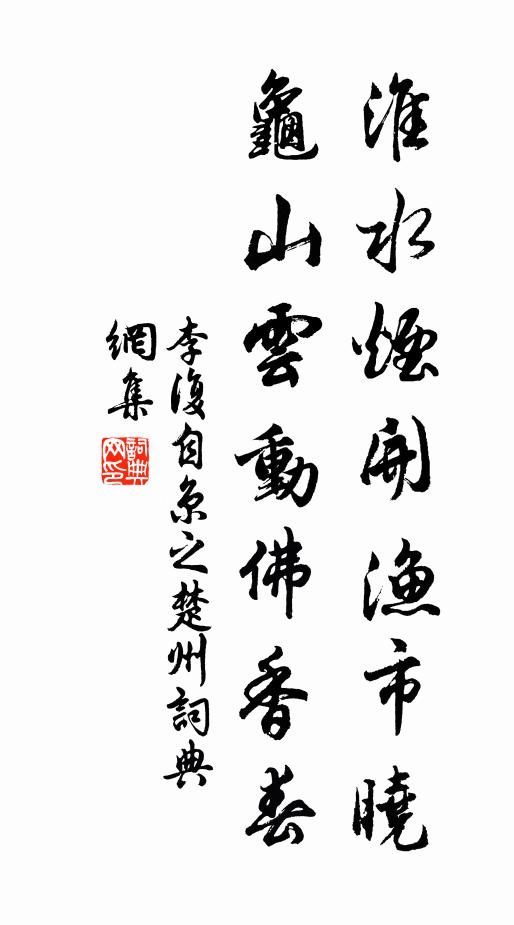 淮水煙開漁市曉
龜山雲動佛香春
李復自京之楚州詞典
網集
詞典網印